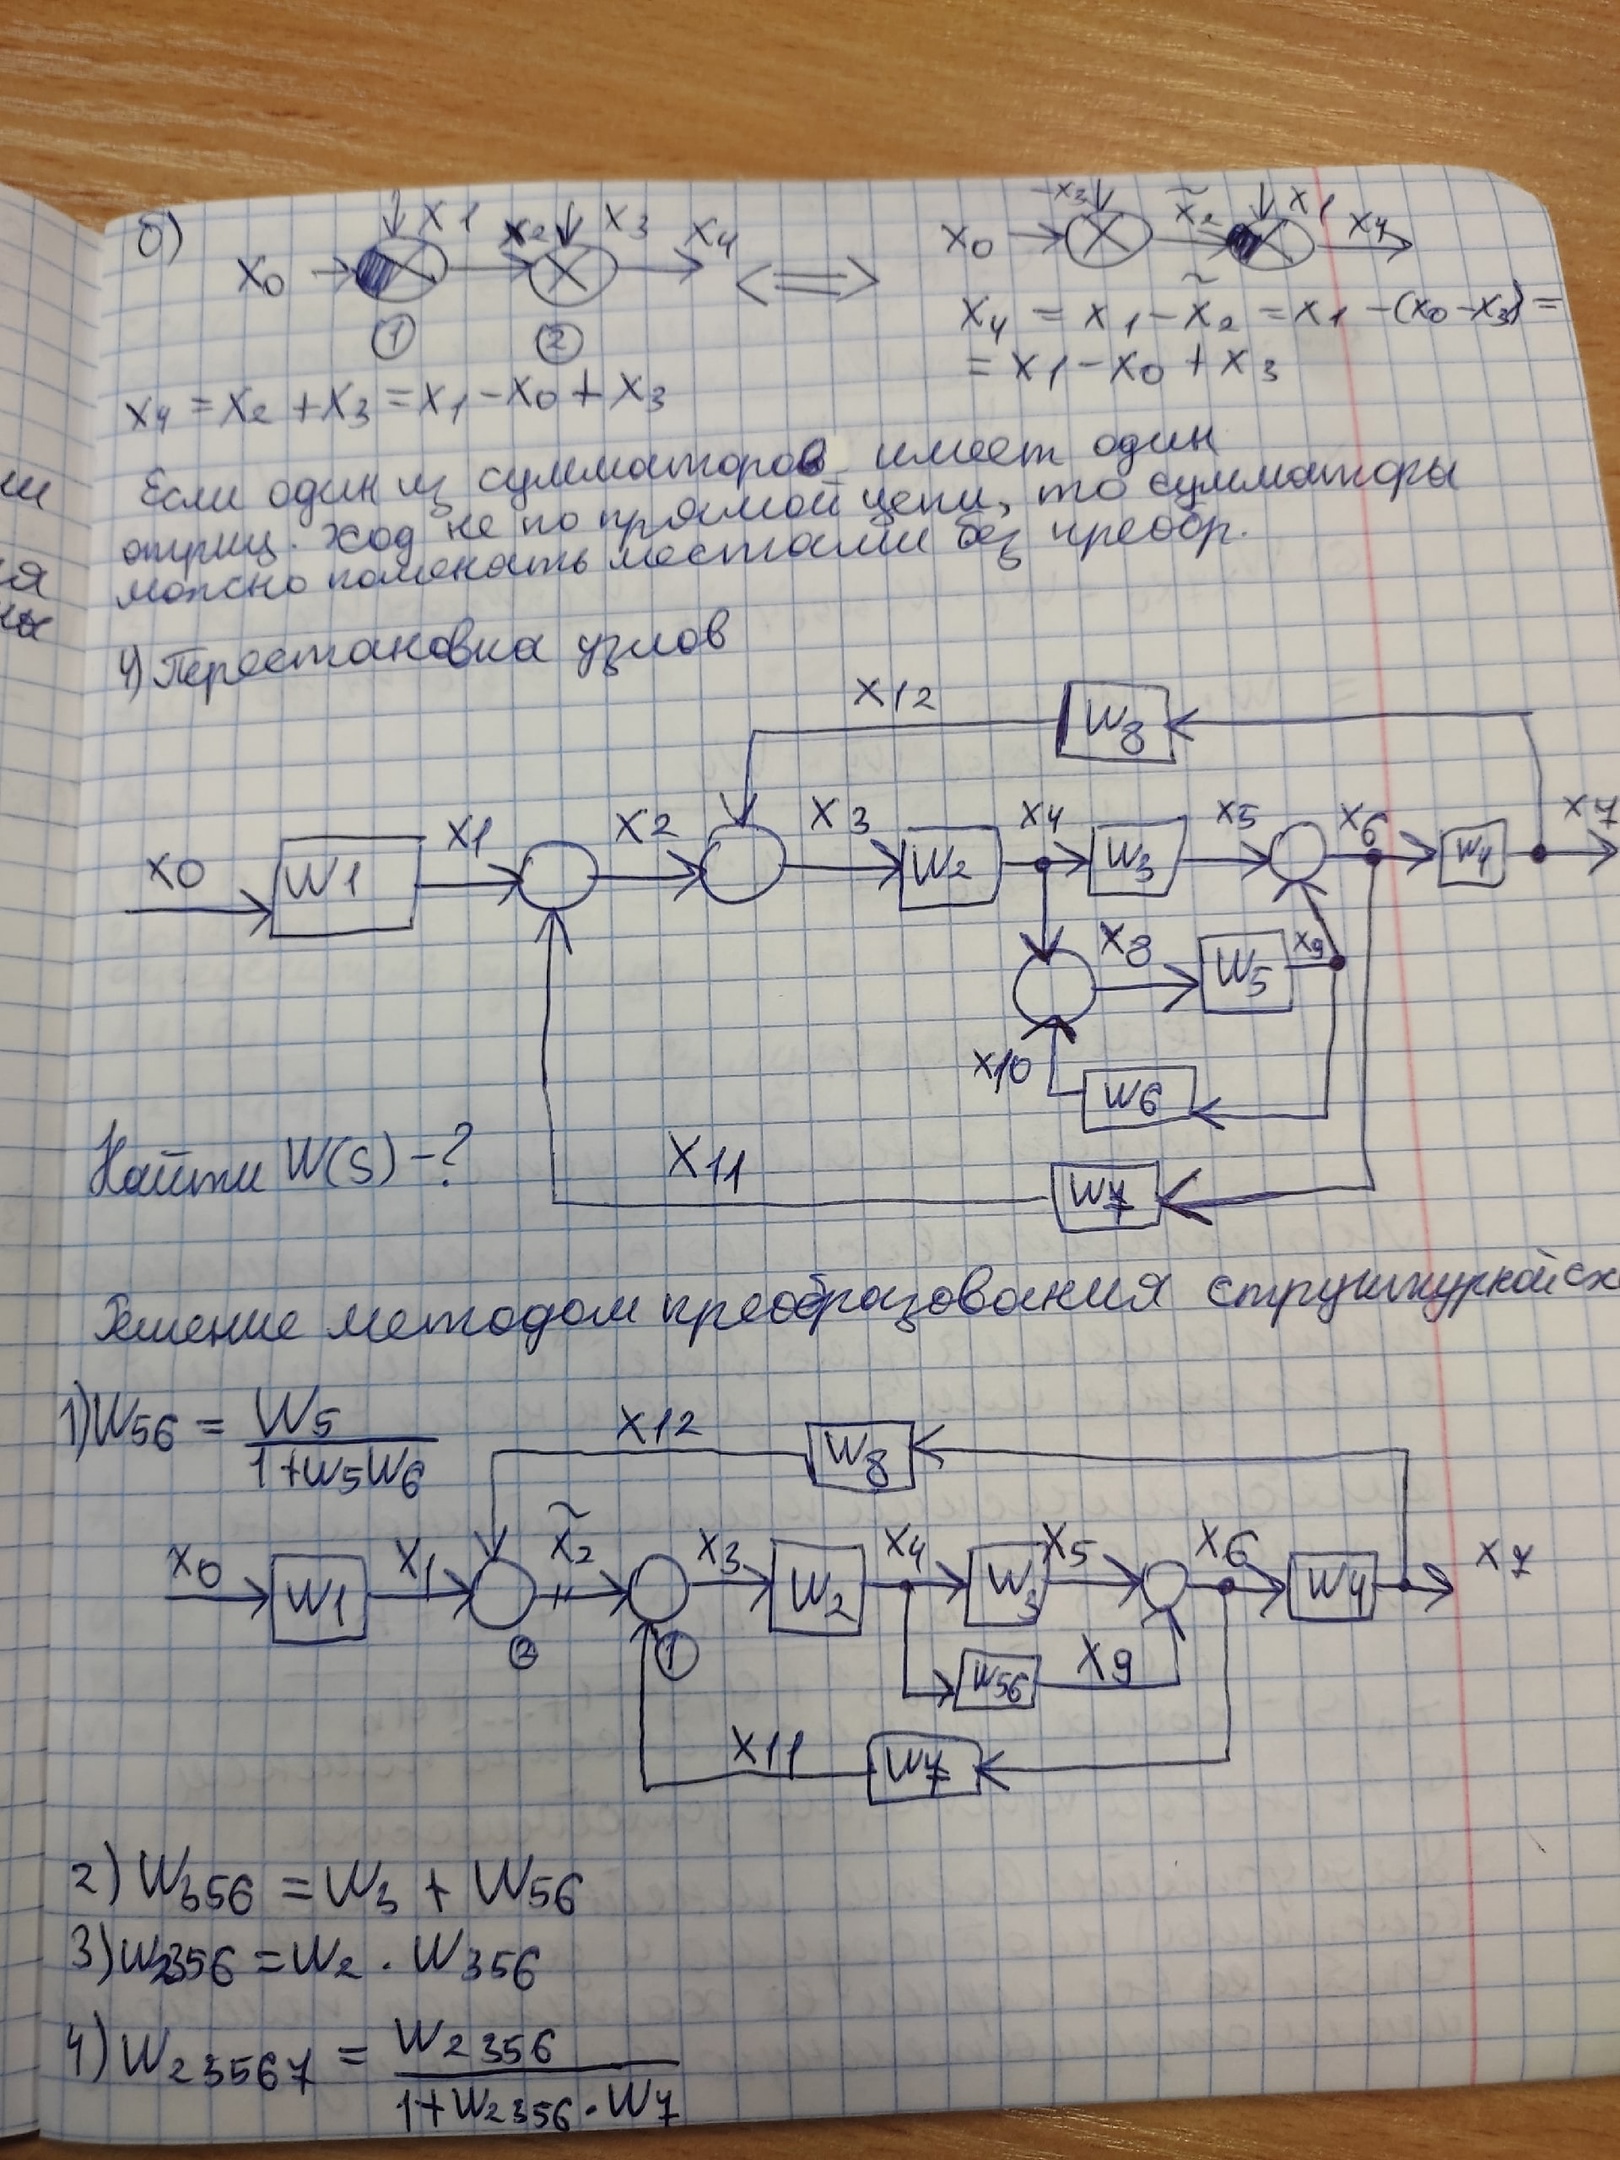 б)
x1 x2 x3 x4
x0
① ②
x4 = x2 + x3 = x1 - x0 + x3
-x3 x̃2 x1 x4
x0
x4 = x1 - x̃2 = x1 - (x0 - x3) =
= x1 - x0 + x3
Если один из сумматоров имеет один
отриц. ход не по прямой цепи, то сумматоры
можно поменять местами без преобр.
4) Перестановка узлов
x12 W8
x0 W1 x1 x2 x3 W2 x4 W3 x5 x6 W4 x7
x8 W5 x9
x10 W6
x11 W7
Найти W(s) - ?
Решение методом преобразования структурной сх
1) W56 = W5 / 1+W5W6
x12 W8
x0 W1 x1 x̃2 x3 W2 x4 W3 x5 x6 W4 x7
② ①
W56 x9
x11 W7
2) W356 = W3 + W56
3) W2356 = W2 . W356
4) W23567 = W2356 / 1+W2356 . W7